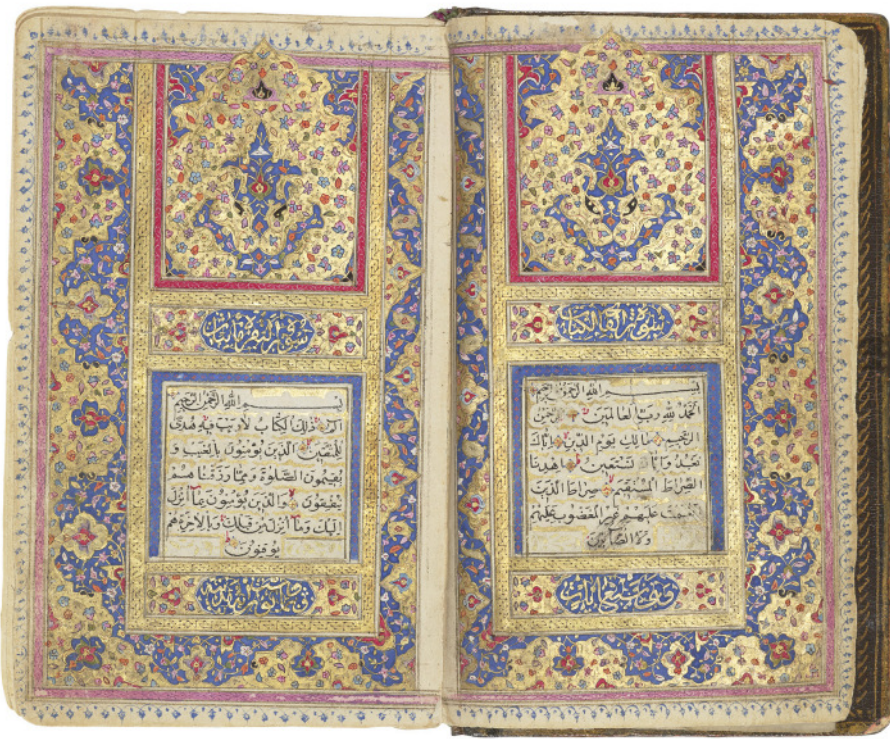 سورة فاتحة الكتاب
بسم الله الرحمن الرحيم
الحمد لله رب العالمين الرحمن
الرحيم مالك يوم الدين اياك
نعبد واياك نستعين اهدنا
الصراط المستقيم صراط الذين
انعمت عليهم غير المغضوب عليهم
ولا الضالين
سبع ايات
سورة البقرة مايتان
بسم الله الرحمن الرحيم
الم ذلك الكتاب لا ريب فيه هدى
للمتقين الذين يؤمنون بالغيب و
يقيمون الصلوة ومما رزقناهم
ينفقون والذين يؤمنون بما انزل
اليك وما انزل من قبلك وبالاخرة هم
يوقنون